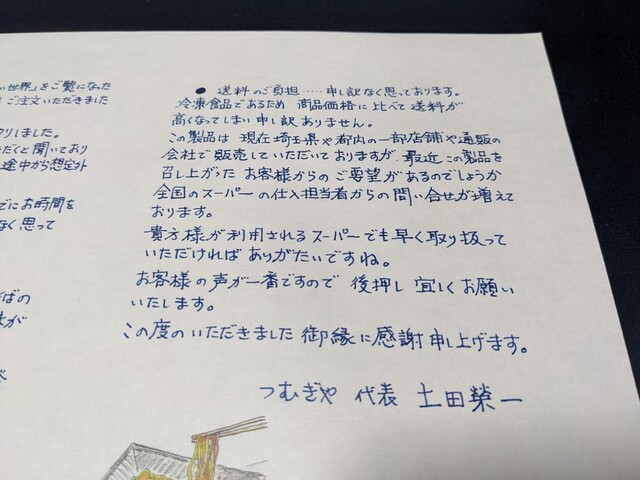 世界」をご覧になった
ご注文いただきました
りしました。
だくと聞いており
途中から想定外
でにお時間を
なく思って
ばの
が
● 送料のご負担……申し訳なく思っております。
冷凍食品であるため 商品価格に比べて送料が
高くなってしまい申し訳ありません。
この製品は 現在埼玉県や都内の一部店舗や通販の
会社で販売していただいておりますが、最近この製品を
召し上がった お客様からのご要望があるのでしょうか
全国のスーパーの仕入担当者からの問い合せが増えて
おります。
貴方様が利用されるスーパーでも早く取り扱って
いただければありがたいですね。
お客様の声が一番ですので 後押し宜しくお願い
いたします。
この度のいただきました御縁に感謝申し上げます。
つむぎや 代表 土田榮一